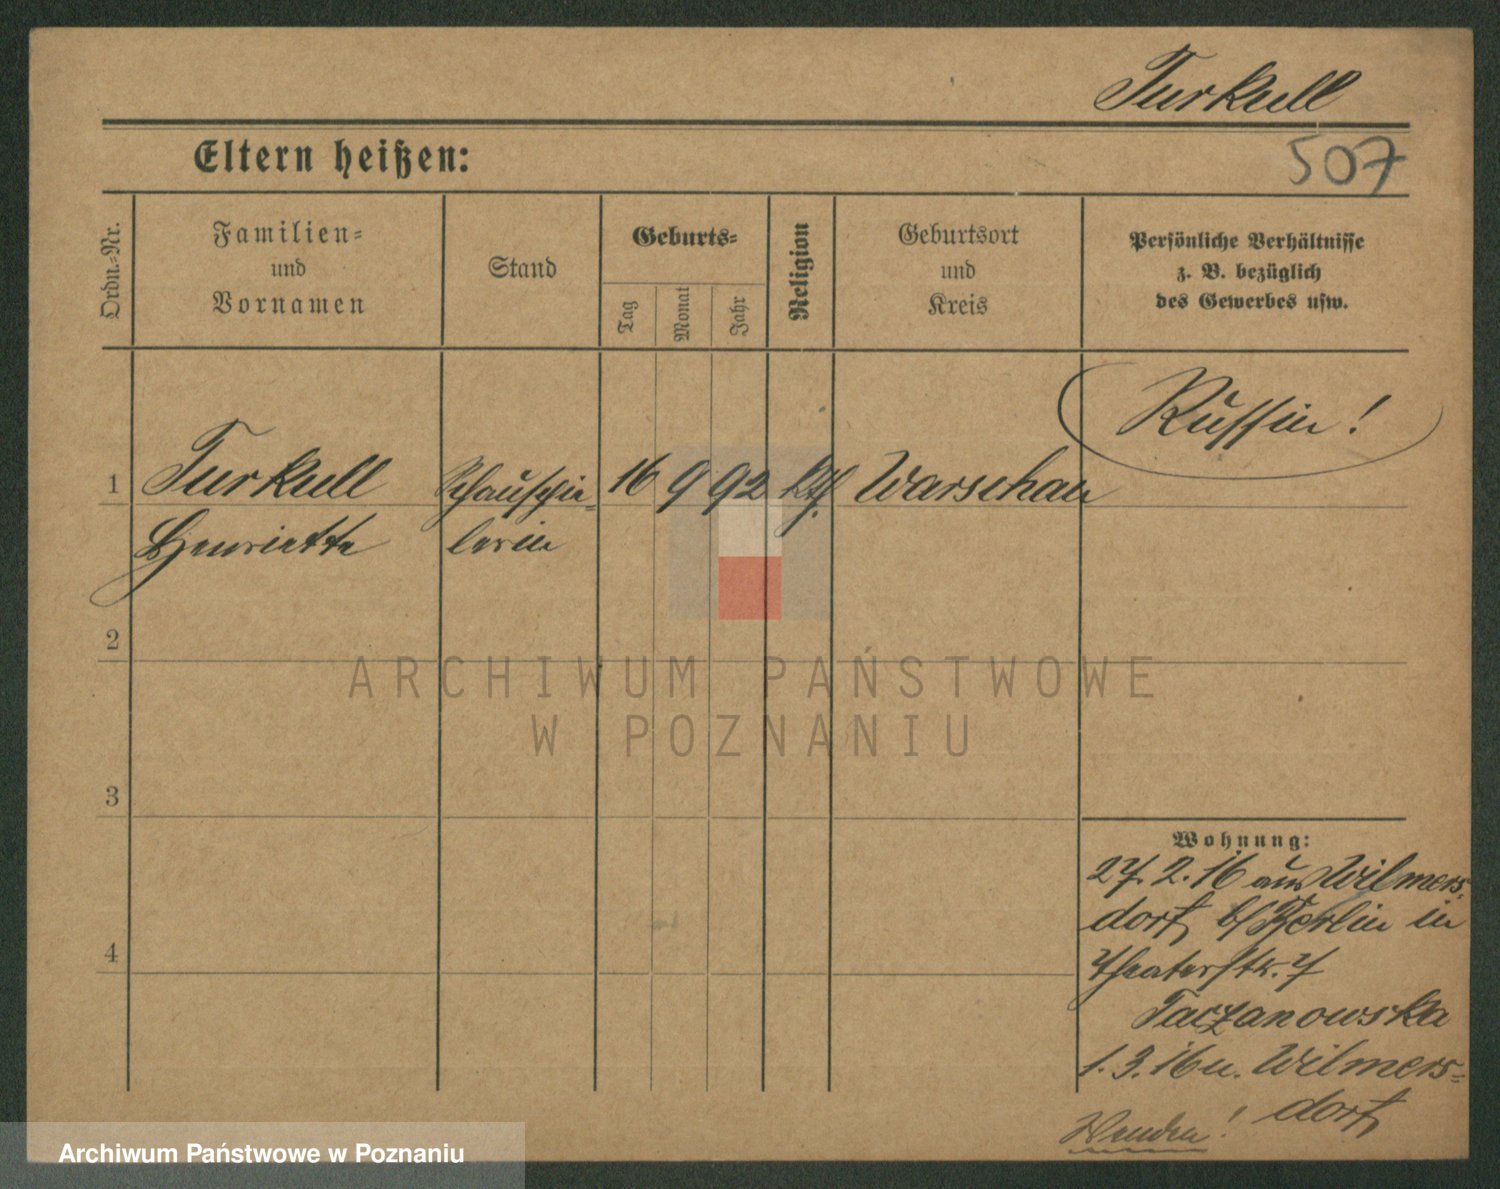 Turkull
507
Eltern heißen:
Ordn.=Nr.
Familien=
und
Vornamen
Stand
Geburts=
Tag
Monat
Jahr
Religion
Geburtsort
und
Kreis
Persönliche Verhältnisse
z. B. bezüglich
des Gewerbes usw.
Russin!
1 Turkull Schauspie= 16 9 92 kth. Warschau
Henriette lerin
2
3
4
ARCHIWUM PAŃSTWOWE
W POZNANIU
Wohnung:
27. 2. 16 aus Wilmers=
dorf b/Berlin in
Theaterstr. 7
Taczanowska
1. 3. 16 n. Wilmers=
dorf
Wenden!
Archiwum Państwowe w Poznaniu